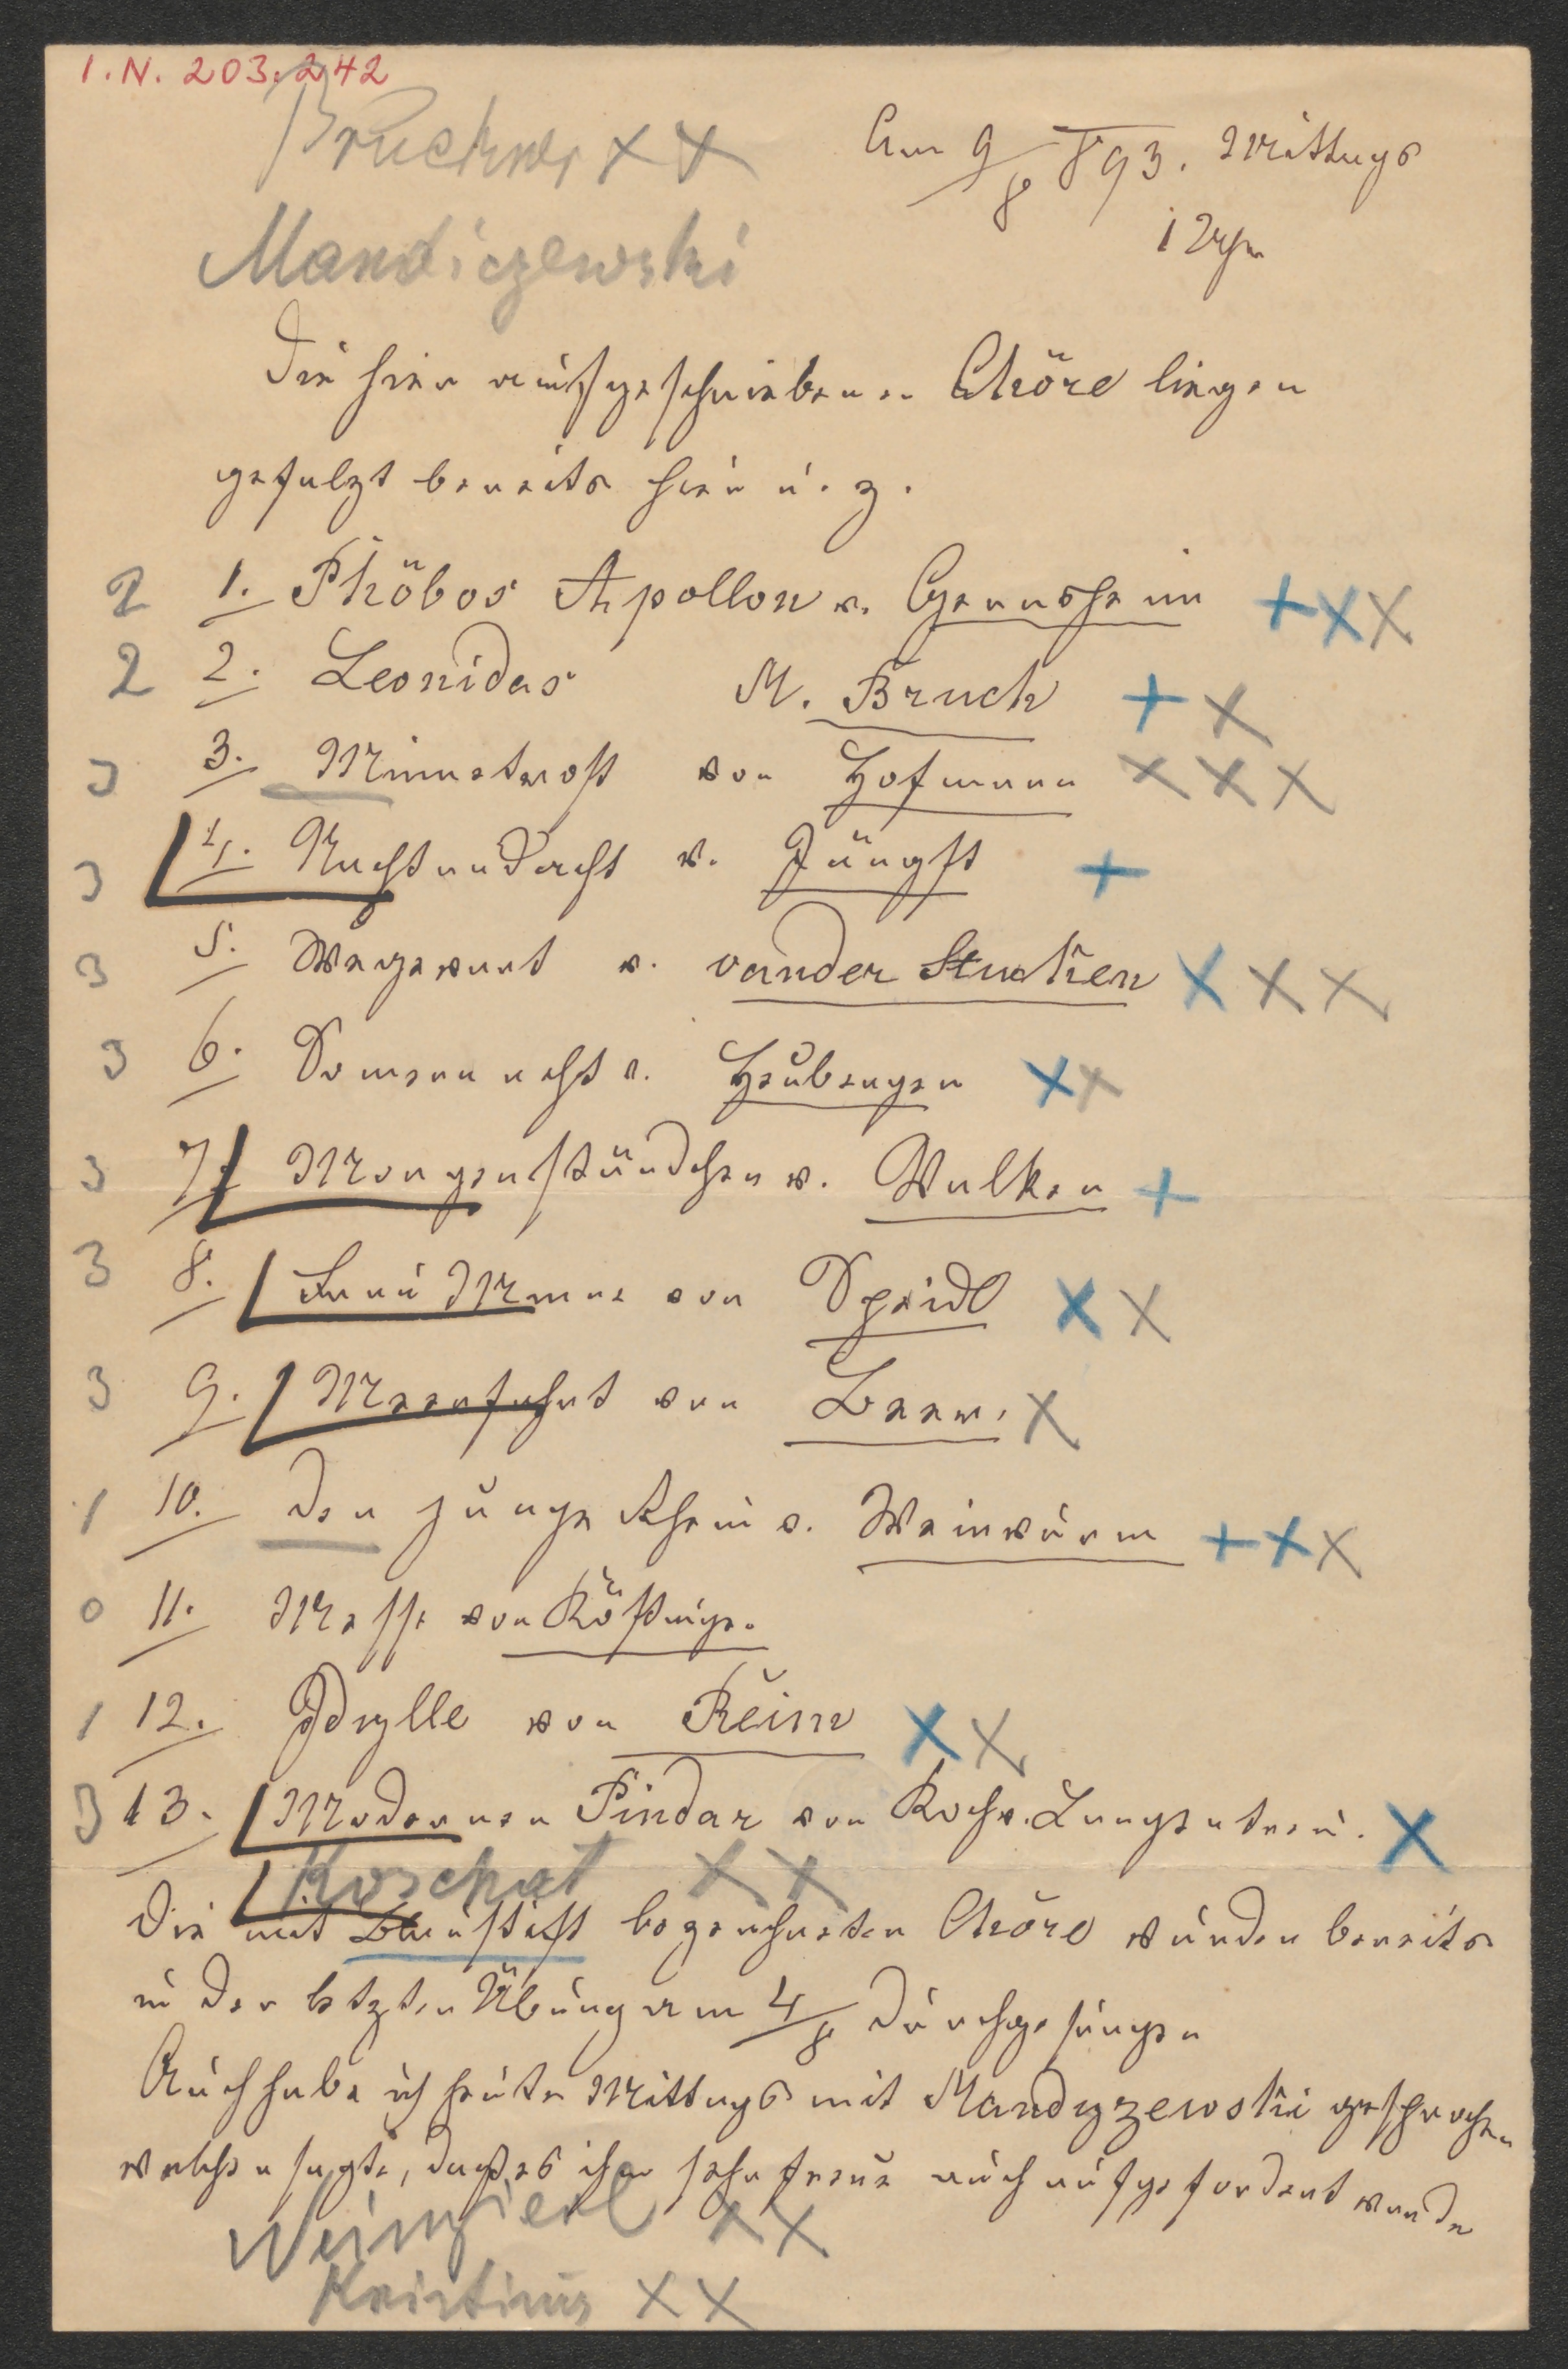 I.N. 203.242
Bruckner XX
Am 9/8 893. Mittags
1 Uhr
Mandiczewski
Die hier aufgeschriebenen Chöre liegen
gefalzt bereits hier u. z.
2 1. Phöbos Apollon v. Gernsheim +XX
2 2. Leonidas M. Bruch +X
3 3. Minnetrost von Hofmann XXX
3 4. Nachtandacht v. Jüngst +
3 5. Wegewart v. van der Stucken XXX
3 6. v. Heuberger XX
3 7. Morgenständchen v. Walken +
3 8. Frau Minne von Speidl XX
3 9. Meerfahrt von Beer. X
1 10. Der junge Rhein v. Weinwurm ++X
0 11. Messe von
1 12. Idylle von Reim XX
3 13. Moderner Pindar von Koch v. Langentreu. X
Koschat XX
Die mit Blaustift bezeichneten Chöre wurden bereits
in der letzten Übung am 4/8 durchgesungen
Auch habe ich heute Mittags mit Mandyzewski gesprochen
welcher sagte, daß es ihm sehr freue auch aufgefordert werde
Weinzierl XX
Kristinus XX